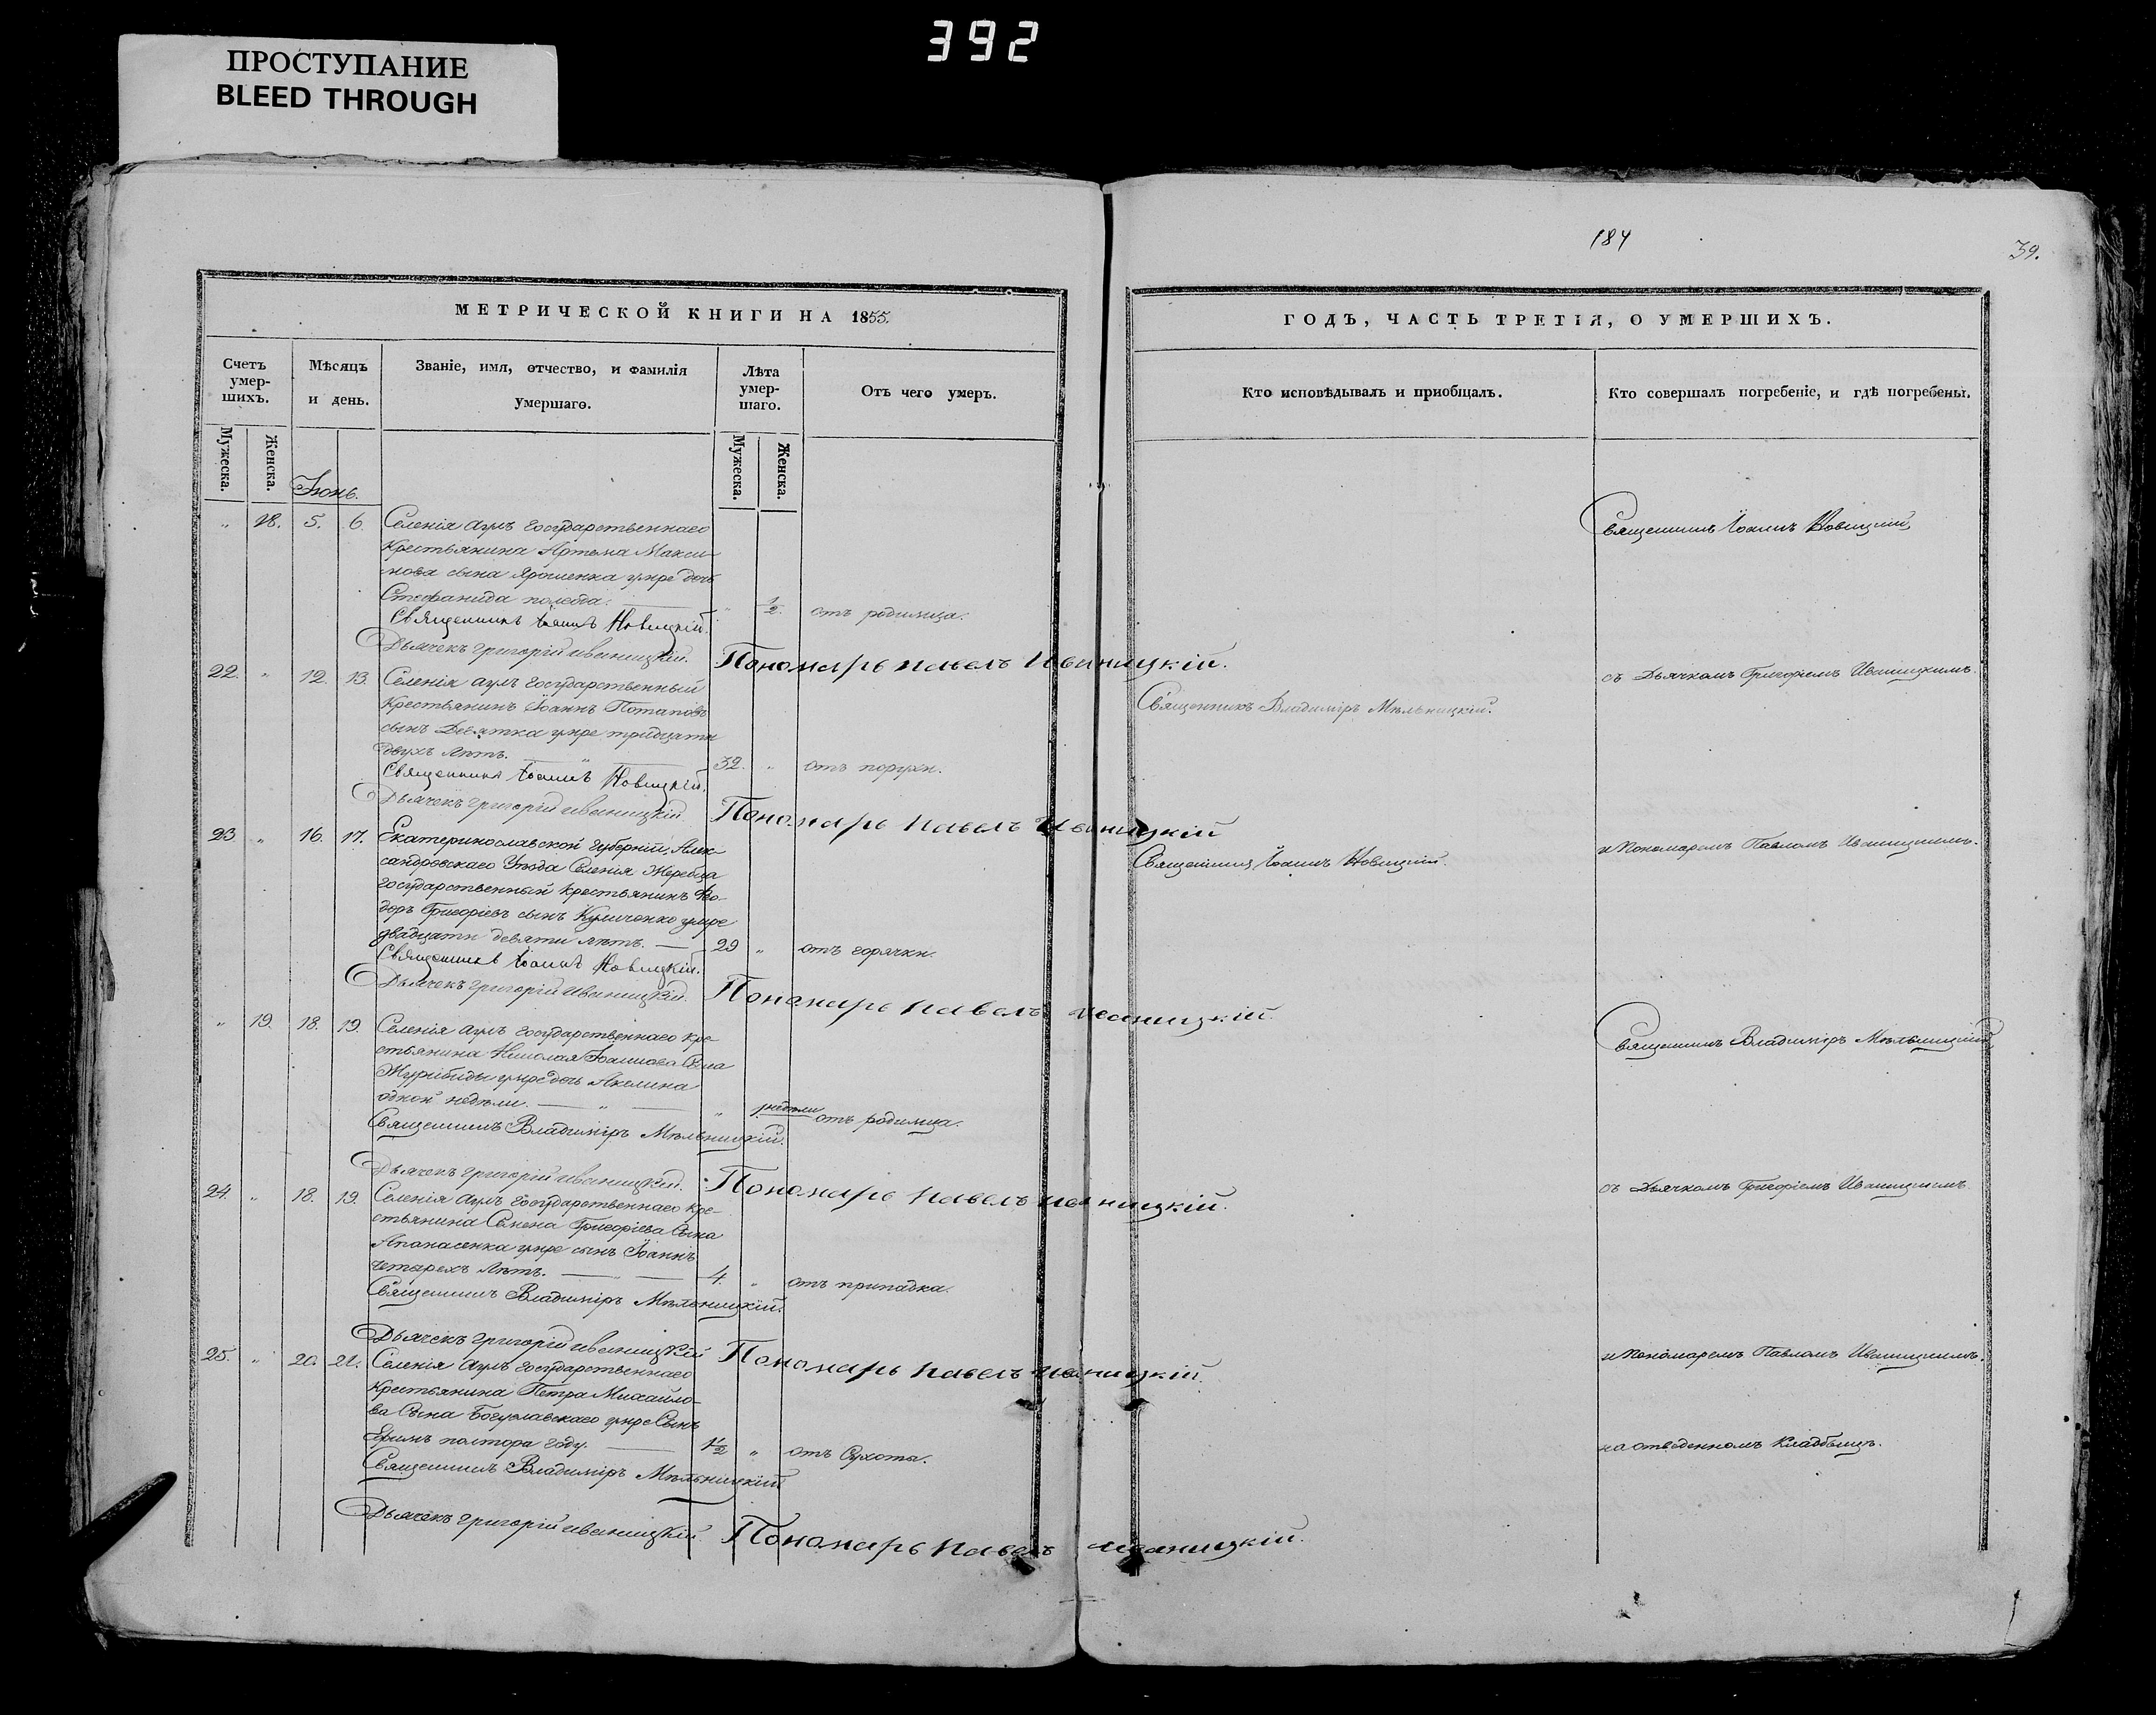 392
ПРОСТУПАНИЕ
BLEED THROUGH
184
39.
МЕТРИЧЕСКОЙ КНИГИ НА 1855.
ГОДЪ, ЧАСТЬ ТРЕТІЯ, О УМЕРШИХЪ.
Счетъ умер-шихъ.
Мѣсяцъ и день.
Званіе, имя, отчество, и фамилія умершаго.
Лѣта умер-шаго.
Отъ чего умеръ.
Кто исповѣдывалъ и приобщалъ.
Кто совершалъ погребеніе, и гдѣ погребены.
Мужеска.
Женска.
Мужеска.
Женска.
Іюнь.
„ 18. 5. 6. Селенія Аулъ государственнаго
Крестьянина Артема Макси-
мова сына Ярошенка умре дочь
Стефанида полгода. „ 1/2. отъ родимца.
Священникъ Іоаннъ Новицкій.
Дьячекъ Григорій Иваницкій. Пономарь Павелъ Иваницкій.
Священникъ Іоаннъ Новицкій
22. „ 12. 13. Селенія Аулъ государственный
Крестьянинъ Іоаннъ Потаповъ
сынъ Десятка умре тридцати
двухъ лѣтъ. 32. „ отъ порухи.
Священникъ Іоаннъ Новицкій.
Дьячекъ Григорій Иваницкій. Пономарь Павелъ Иваницкій
Священникъ Владиміръ Мѣльницкій.
съ Дьячкомъ Григоріемъ Иваницкимъ.
23 „ 16. 17. Екатеринославской Губерніи, Алек-
сандровскаго Уѣзда Селенія Жеребца
государственный крестьянинъ Ѳео-
доръ Григоріевъ сынъ Куличенко умре
двадцати девяти лѣтъ. 29 „ отъ горячки.
Священникъ Іоаннъ Новицкій.
Дьячекъ Григорій Иваницкій. Пономарь Павелъ Иваницкій.
Священникъ Іоаннъ Новицкій.
и Пономаремъ Павломъ Иваницкимъ.
„ 19. 18. 19. Селенія Аулъ государственнаго кре-
стьянина Николая Іоаннова Сына
умре дочь Акелина
одной недѣли. „ недѣли отъ родимца.
Священникъ Владиміръ Мѣльницкій.
Дьячекъ Григорій Иваницкій. Пономарь Павелъ Иваницкій.
Священникъ Владиміръ Мѣльницкій
24. „ 18. 19. Селенія Аулъ государственнаго кре-
стьянина Семена Григоріева Сына
Апанасенка умре сынъ Іоаннъ
четырехъ лѣтъ. 4. „ отъ припадка.
Священникъ Владиміръ Мѣльницкій.
Дьячекъ Григорій Иваницкій Пономарь Павелъ Иваницкій.
съ Дьячкомъ Григоріемъ Иваницкимъ.
25. „ 20. 21. Селенія Аулъ государственнаго
Крестьянина Петра Михайло-
ва Сына Богуславскаго умре Сынъ
Ефимъ полтора году. 1 1/2 „ отъ Сухоты.
Священникъ Владиміръ Мѣльницкій
Дьячекъ Григорій Иваницкій. Пономарь Павелъ Иваницкій.
и Пономаремъ Павломъ Иваницкимъ.
на отведенномъ кладбищѣ.